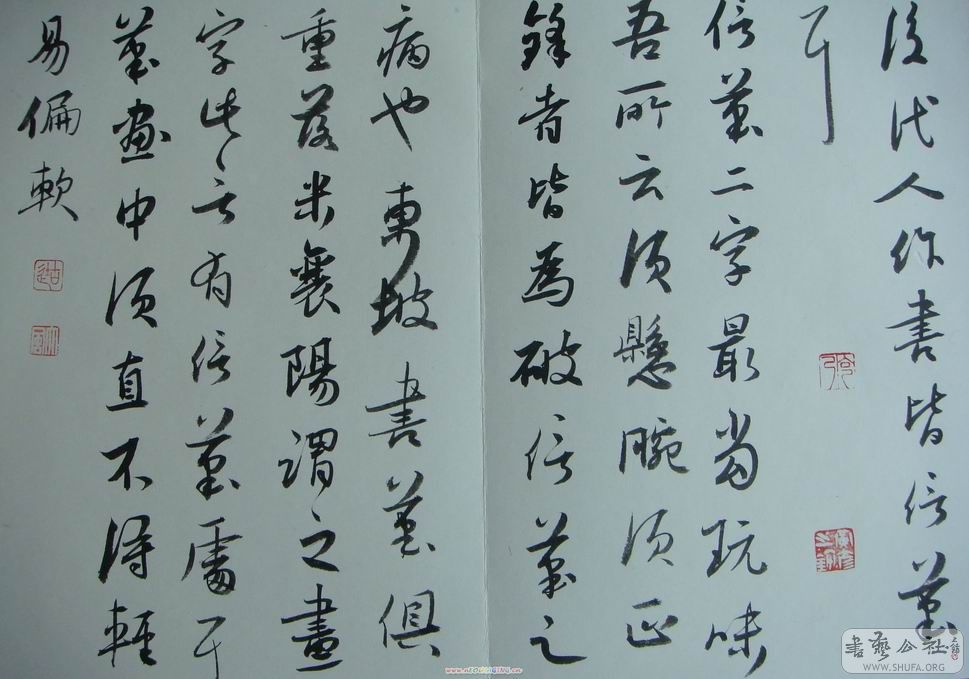 後代人作書皆信筆
耳
信筆二字最當玩味
吾所云須懸腕須正
鋒者皆為破信筆之
病也東坡書筆俱
重落米襄陽謂之畫
字此言有信筆處耳
筆畫中須直不得輕
易偏軟
書藝公社
WWW.SHUFA.ORG